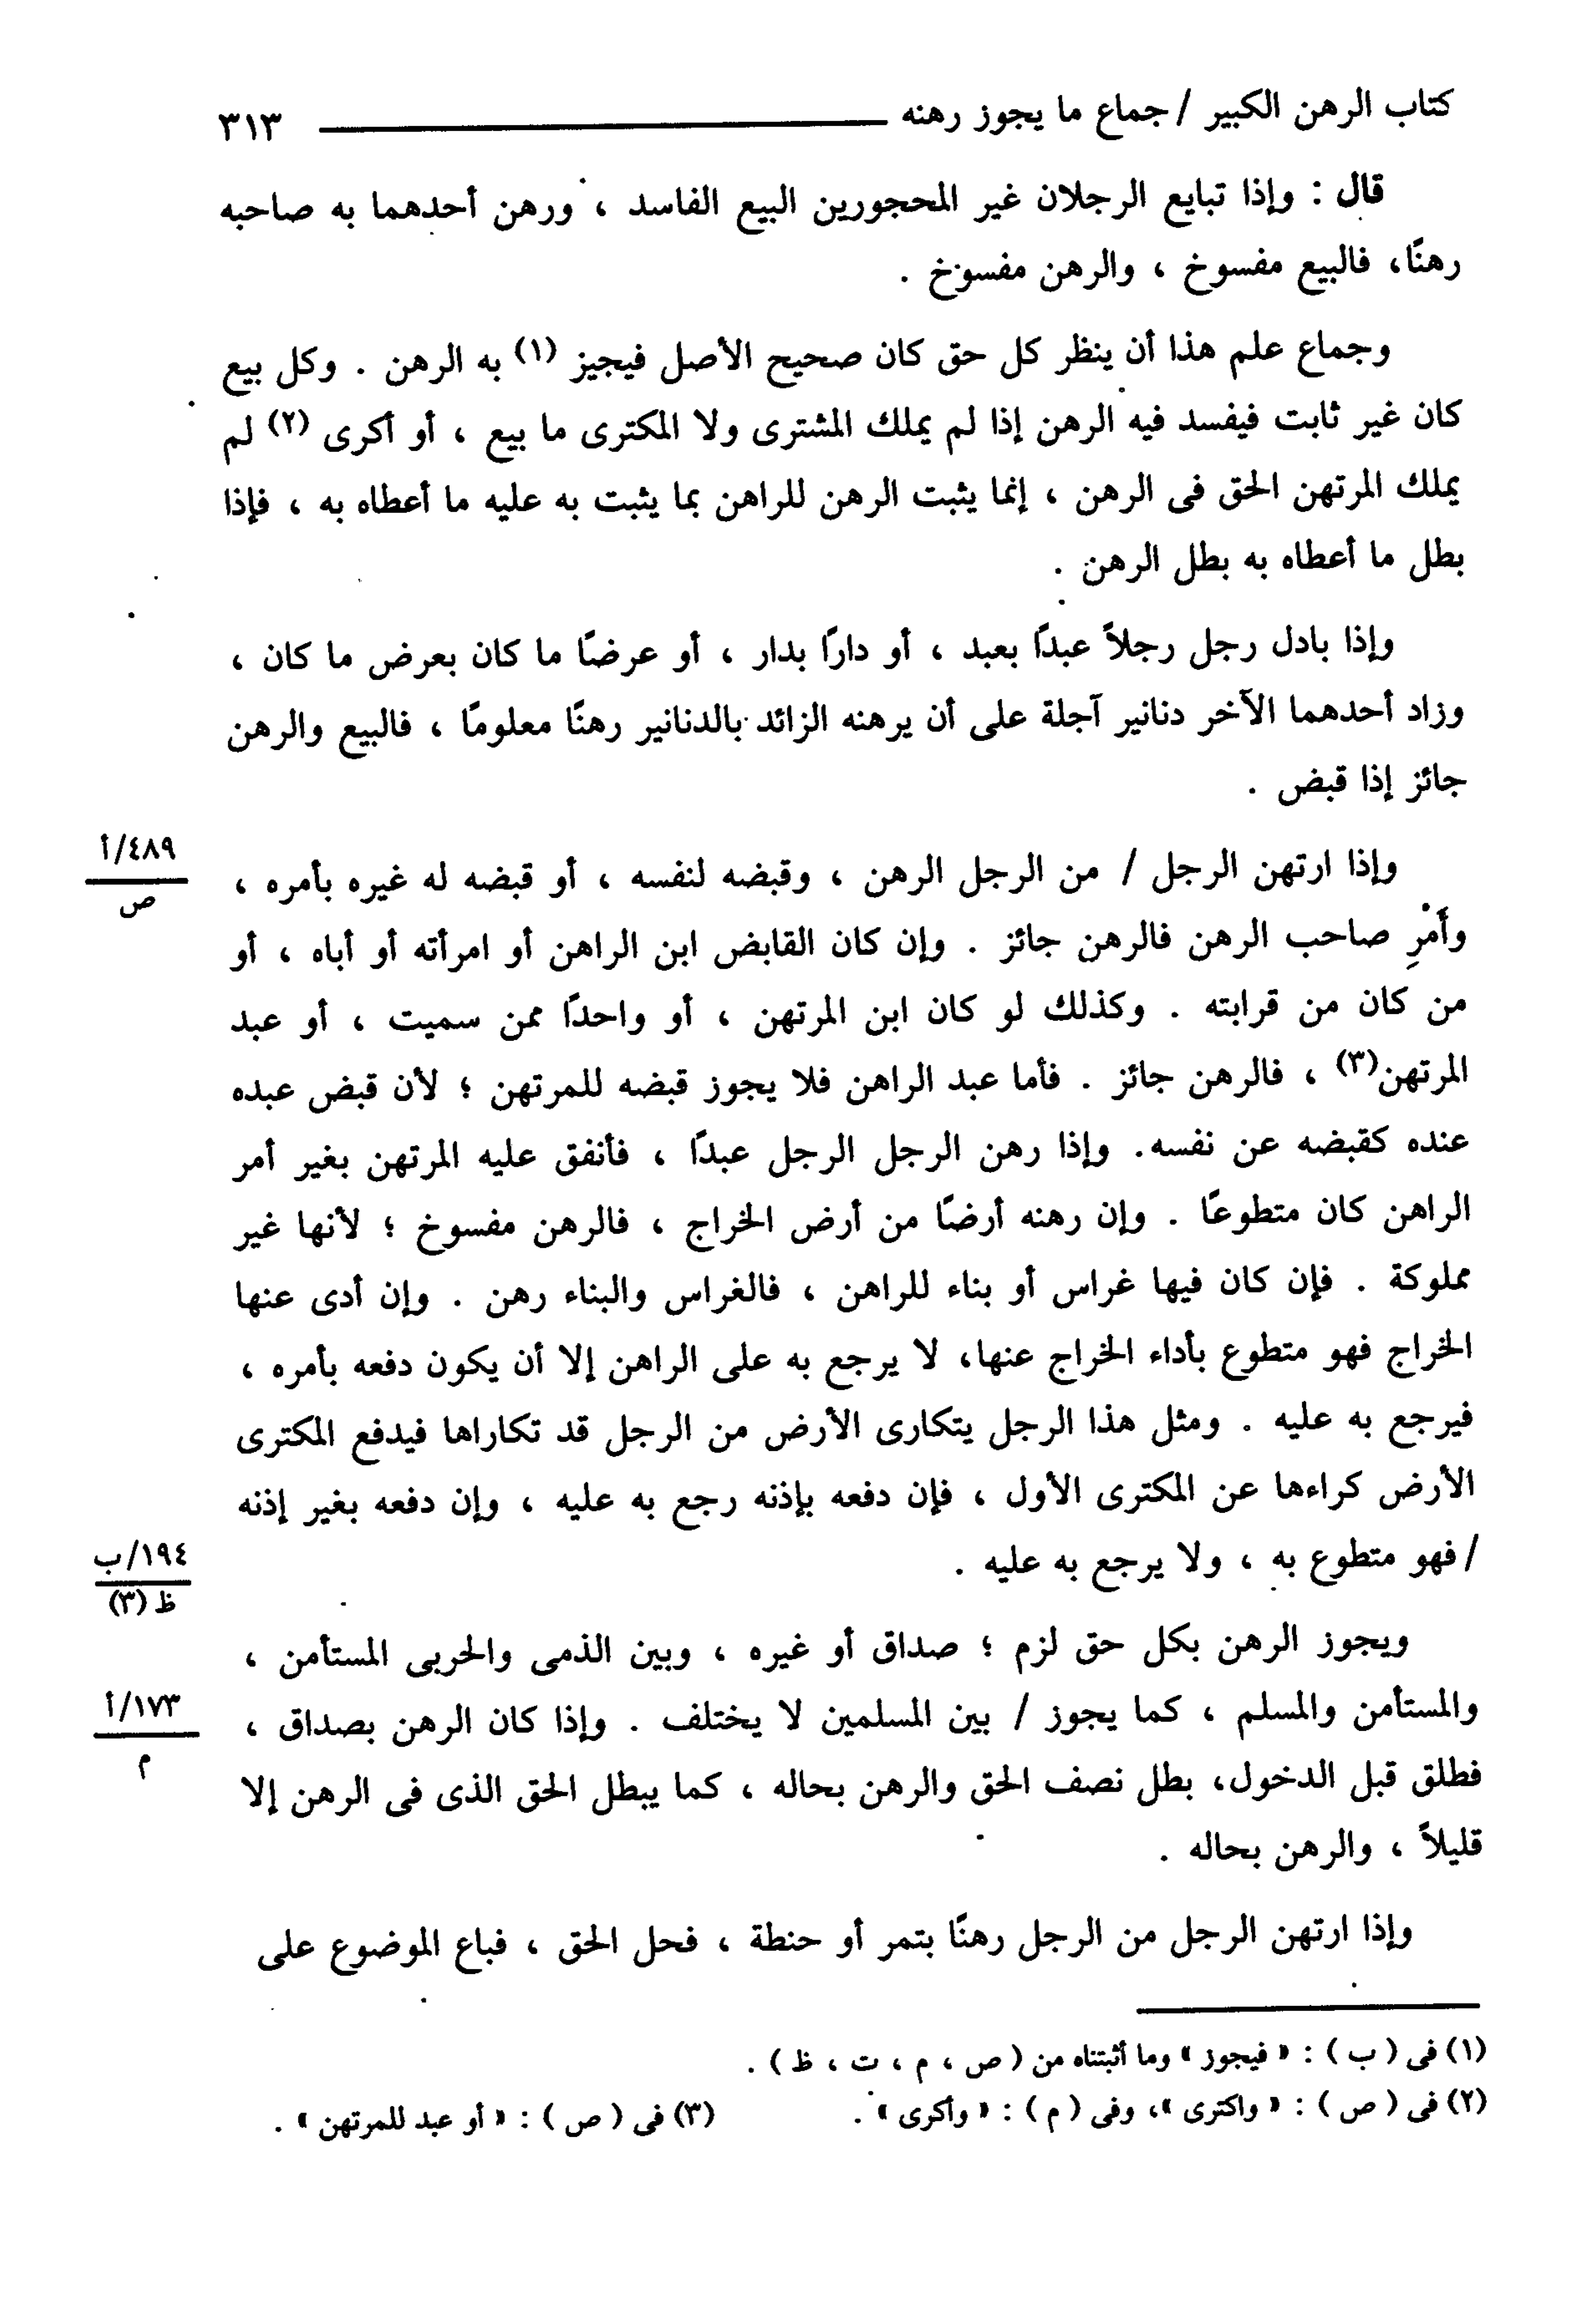 كتاب الرهن الكبير / جماع ما يجوز رهنه ــــــــــــــــــــ ٣١٣
قال : وإذا تبايع الرجلان غير المحجورين البيع الفاسد ، ورهن أحدهما به صاحبه
رهنًا، فالبيع مفسوخ ، والرهن مفسوخ .
وجماع علم هذا أن ينظر كل حق كان صحيح الأصل فيجيز (١) به الرهن . وكل بيع
كان غير ثابت فيفسد فيه الرهن إذا لم يملك المشترى ولا المكترى ما بيع ، أو أكرى (٢) لم
يملك المرتهن الحق فى الرهن ، إنما يثبت الرهن للراهن بما يثبت به عليه ما أعطاه به ، فإذا
بطل ما أعطاه به بطل الرهن .
وإذا بادل رجل رجلاً عبدًا بعبد ، أو دارًا بدار ، أو عرضًا ما كان بعرض ما كان ،
وزاد أحدهما الآخر دنانير آجلة على أن يرهنه الزائد بالدنانير رهنًا معلومًا ، فالبيع والرهن
جائز إذا قبض .
٤٨٩/أ
ص
وإذا ارتهن الرجل / من الرجل الرهن ، وقبضه لنفسه ، أو قبضه له غيره بأمره ،
وأَمْرِ صاحب الرهن فالرهن جائز . وإن كان القابض ابن الراهن أو امرأته أو أباه ، أو
من كان من قرابته . وكذلك لو كان ابن المرتهن ، أو واحدًا ممن سميت ، أو عبد
المرتهن(٣) ، فالرهن جائز . فأما عبد الراهن فلا يجوز قبضه للمرتهن ؛ لأن قبض عبده
عنده كقبضه عن نفسه. وإذا رهن الرجل الرجل عبدًا ، فأنفق عليه المرتهن بغير أمر
الراهن كان متطوعًا . وإن رهنه أرضًا من أرض الخراج ، فالرهن مفسوخ ؛ لأنها غير
مملوكة . فإن كان فيها غراس أو بناء للراهن ، فالغراس والبناء رهن . وإن أدى عنها
الخراج فهو متطوع بأداء الخراج عنها، لا يرجع به على الراهن إلا أن يكون دفعه بأمره ،
فيرجع به عليه . ومثل هذا الرجل يتكارى الأرض من الرجل قد تكاراها فيدفع المكترى
الأرض كراءها عن المكترى الأول ، فإن دفعه بإذنه رجع به عليه ، وإن دفعه بغير إذنه
١٩٤/ب
ظ (٣)
/ فهو متطوع به ، ولا يرجع به عليه .
ويجوز الرهن بكل حق لزم ؛ صداق أو غيره ، وبين الذمى والحربى المستأمن ،
١٧٣/أ
م
والمستأمن والمسلم ، كما يجوز / بين المسلمين لا يختلف . وإذا كان الرهن بصداق ،
فطلق قبل الدخول، بطل نصف الحق والرهن بحاله ، كما يبطل الحق الذى فى الرهن إلا
قليلاً ، والرهن بحاله .
وإذا ارتهن الرجل من الرجل رهنًا بتمر أو حنطة ، فحل الحق ، فباع الموضوع على
(١) فى ( ب ) : « فيجوز » وما أثبتناه من ( ص ، م ، ت ، ظ ) .
(٢) فى ( ص ) : « واكترى »، وفى ( م ) : « وأكرى » . (٣) فى ( ص ) : « أو عبد للمرتهن » .